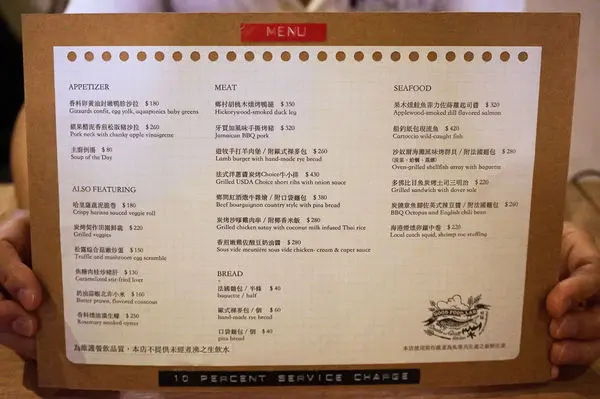 MENU
APPETIZER
$ 180
Gizzards confit, egg yolk, aquaponics baby greens
蘋果醋泥香煎松阪豬沙拉 $ 260
Pork neck with chunky apple vinaigrette
主廚例湯 $ 80
Soup of the Day
ALSO FEATURING
$ 180
Crispy harissa sauced veggie roll
炭烤契作田園鮮蔬 $ 220
Grilled veggies
松露綜合菇嫩炒蛋 $ 150
Truffle and mushroom egg scramble
焦糖肉桂炒豬肝 $ 130
Caramelized stir-fried liver
奶油蒜蝦北非小米 $ 160
Butter prawn, flavored couscous
香料燻蠔 $ 230
Rosemary smoked oyster
為維護餐飲品質，本店不提供未經煮沸之生飲水
MEAT
鄉村胡桃木燻烤鴨腿 $ 350
Hickorywood-smoked duck leg
牙買加風味手撕烤豬 $ 320
Jamaican BBQ pork
遊牧手打羊肉堡 / 附歐式裸麥包 $ 260
Lamb burger with hand-made rye bread
法式洋蔥醬炭烤Choice牛小排 $ 430
Grilled USDA Choice short ribs with onion sauce
鄉間紅酒燉牛雜燴 / 附口袋麵包 $ 380
Beef bourguignon country style with pina bread
炭烤沙嗲雞肉串 / 附椰香米飯 $ 280
Grilled chicken satay with coconut milk infused Thai rice
香煎嫩雞佐酸豆奶油醬 $ 280
Sous vide meunière sous vide chicken- cream & caper sauce
BREAD
法國麵包 / 半條 $ 40
baguette / half
歐式裸麥包 / 個 $ 60
hand-made rye bread
口袋麵包 / 個 $ 40
pina bread
SEAFOOD
$ 320
Applewood-smoked dill flavored salmon
船釣紙包現流魚 $ 420
Cartoccio wild-caught fish
$ 280
Oven-grilled shellfish array with baguette
多佛比目魚炭烤土司三明治 $ 220
Grilled sandwich with dover sole
炭燒章魚腳佐英式辣豆醬 / 附法國麵包 $ 260
BBQ Octopus and English chili bean
$ 220
Local catch squid, shrimp roe stuffing
GOOD FOOD LAB
10 PERCENT SERVICE CHARGE